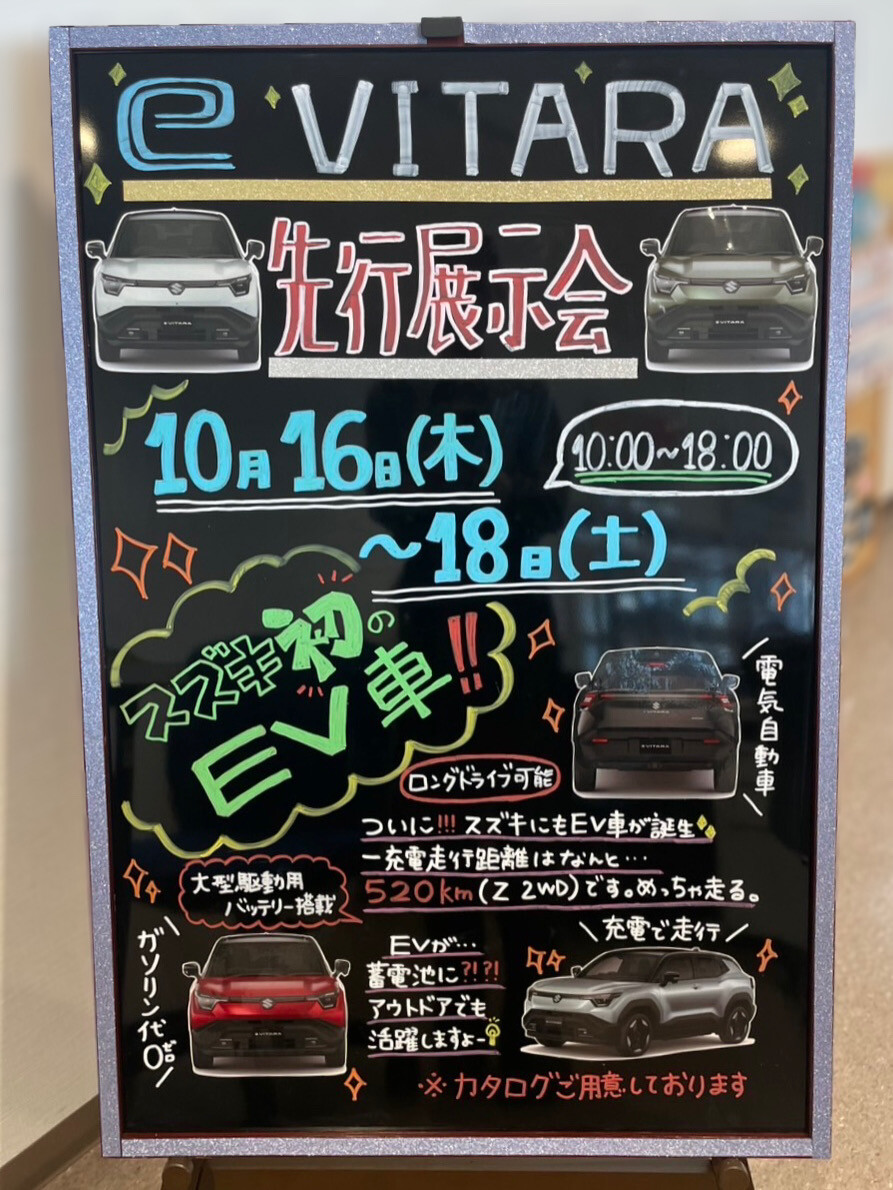 e VITARA
先行展示会
10月16日(木)
10:00~18:00
~18日(土)
スズキ初の
EV車!!
電気自動車
ロングドライブ可能
ついに!!!スズキにもEV車が誕生
一充電走行距離はなんと…
520km(Z 2WD)です。めっちゃ走る。
大型駆動用
バッテリー搭載
ガソリン代0ゼロ
EVが…
蓄電池に?!?!
アウトドアでも
活躍しますよー
\充電で走行/
※カタログご用意しております
E VITARA
E VITARA
E VITARA
E VITARA